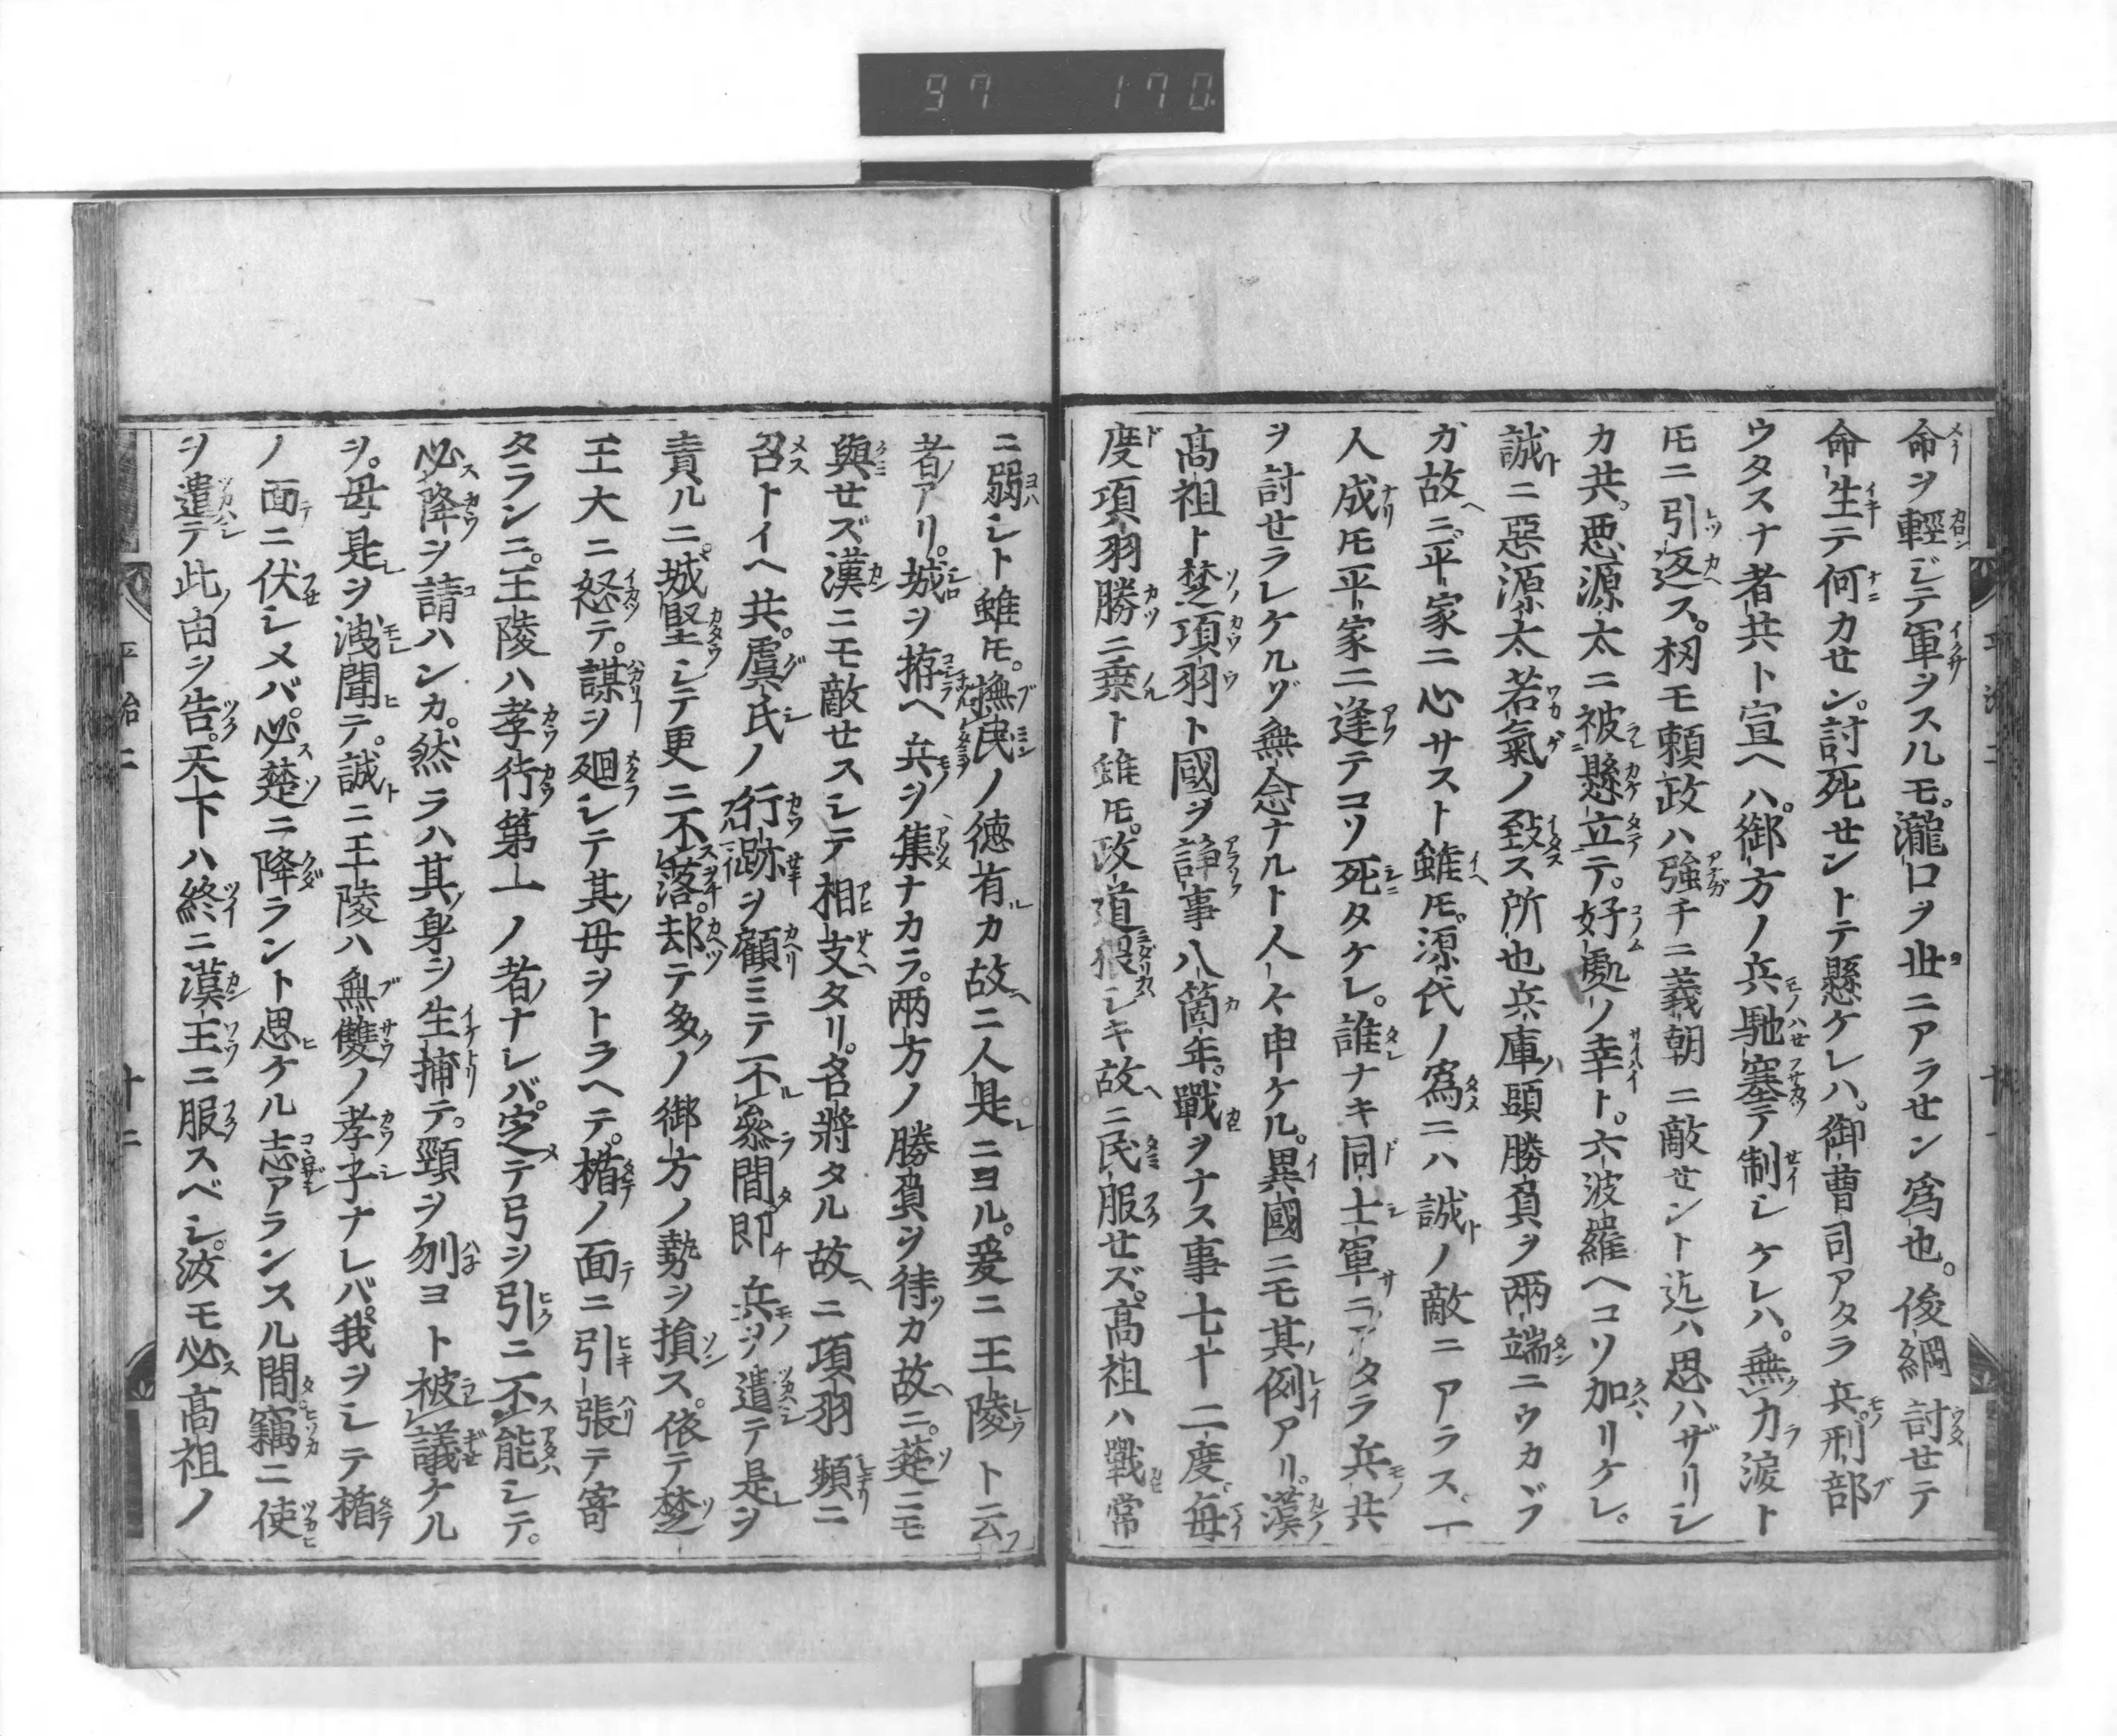 97 170
命ヲ輕ジテ軍ヲスルモ。瀧口ヲ世ニアラセン爲也。俊綱討セテ
命生テ何カセン。討死セントテ懸ケレハ。御曹司アタラ兵刑部
ウタスナ者共ト宣ヘハ。御方ノ兵馳塞テ制シケレハ。無力涙ト
モニ引返ス。扨モ頼政ハ強チニ義朝ニ敵セント迄ハ思ハザリシ
カ共。悪源太ニ被懸立テ。好處ノ幸ト。六波羅ヘコソ加リケレ。
誠ニ惡源太若氣ノ致ス所也兵庫頭勝負ヲ兩端ニウカヾフ
ガ故ニ。平家ニ心サスト雖モ。源氏ノ爲ニハ誠ノ敵ニアラス、一
人成モ平家ニ逢テコソ死タケレ。誰ナキ同士軍ニアタラ兵共
ヲ討セラレケルゾ無念ナルト人々申ケル。異國ニモ其例アリ。漢
高祖ト楚項羽ト國ヲ諍事八箇年。戰ヲナス事七十二度、毎
度項羽勝ニ乗ト雖モ。政道猥シキ故ニ民服セズ。高祖ハ戰常
ニ弱シト雖モ。撫民ノ徳有カ故ニ人是ニヨル。爰ニ王陵ト云
者アリ。城ヲ拵ヘ兵ヲ集ナカラ。兩方ノ勝負ヲ待カ故ニ。楚ニモ
與セズ漢ニモ敵セスシテ相支タリ。名將タル故ニ項羽頻ニ
召トイヘ共。虞氏ノ行跡ヲ顧ミテ不參間即兵ヲ遣テ是ヲ
責ルニ。城堅シテ更ニ不落。却テ多ノ御方ノ勢ヲ損ス。依テ楚
王大ニ怒テ。謀ヲ廻シテ其母ヲトラヘテ。楯ノ面ニ引張テ寄
タランニ。王陵ハ孝行第一ノ者ナレバ。定テ弓ヲ引ニ不能シテ。
必降ヲ請ハンカ。然ラハ其身ヲ生捕テ。頸ヲ刎ヨト被議ケル
ヲ。母是ヲ洩聞テ。誠ニ王陵ハ無雙ノ孝子ナレバ。我ヲシテ楯
ノ面ニ伏シメバ。必楚ニ降ラント思ケル志アランスル間。竊ニ使
ヲ遣テ此由ヲ告。天下ハ終ニ漢王ニ服スベシ。汝モ必高祖ノ
平治二 十二